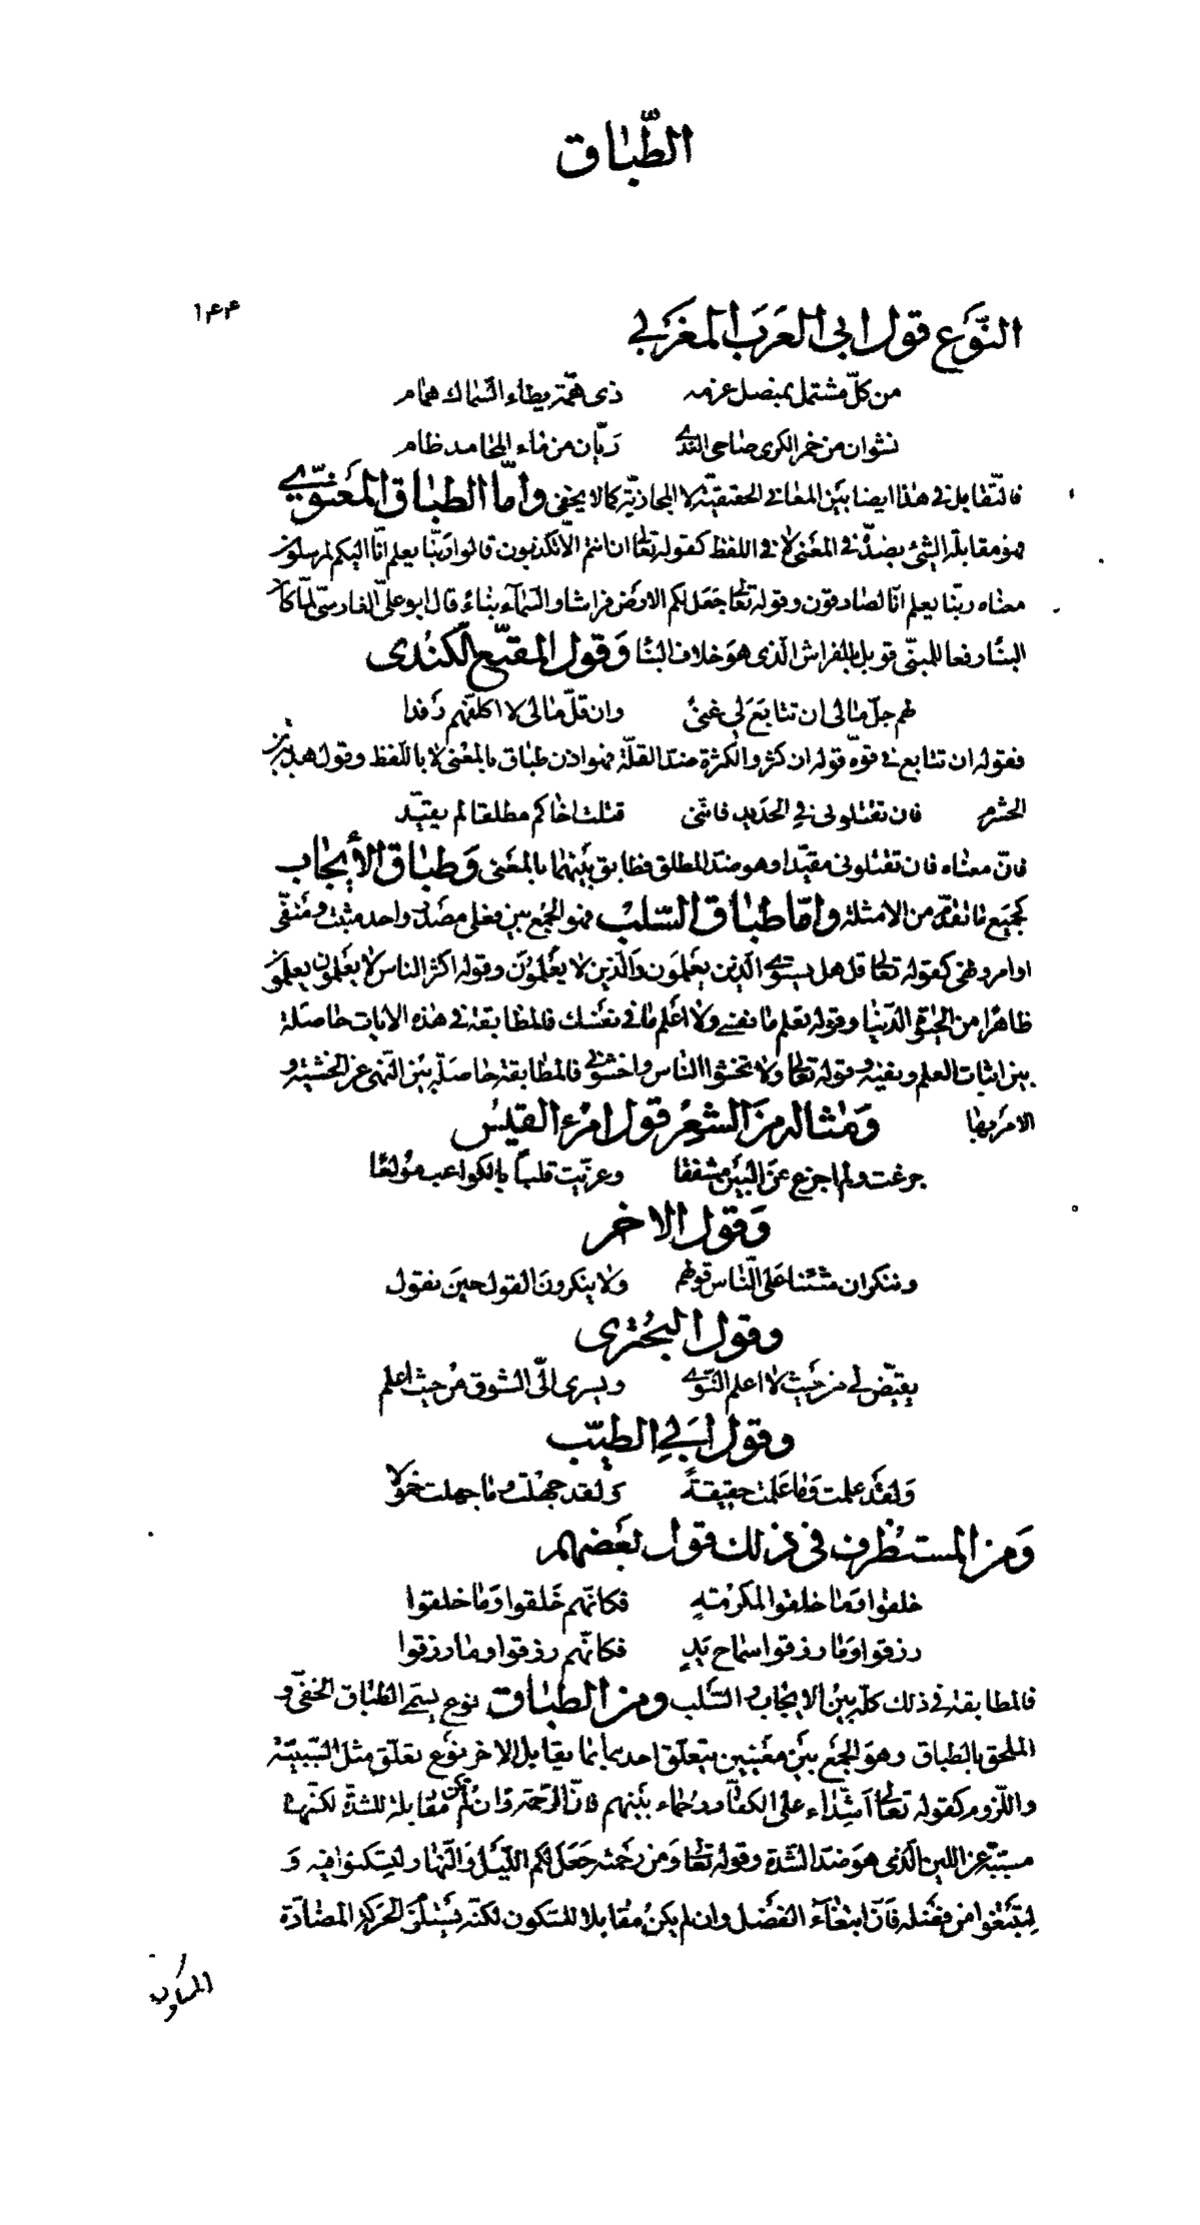 الطّباق
۱۴۴
النّوع قول ابى العرب المغربي
من كلّ مشتمل بمنصل عزمه ذى همّة يطاء السّماك همام
نشوان من خمر الكرى صاحى الندى ريّان من ماء المحامد ظام
فالتّقابل في هذا ايضا بين المعانى الحقيقيّة لا المجازيّة كما لا يخفى وامّا الطباق المعنوي
فهو مقابلة الشئ بضدّه في المعنى لا في اللفظ كقوله تعالى ان انتم الّا تكذبون قالوا ربّنا يعلم انّا اليكم لمرسلون
معناه ربّنا يعلم انّا لصادقون وقوله تعالى جعل لكم الارض فراشا والسّمآء بناءً قال ابو علىّ الفارسىّ لمّا كان
البناء رفعا للمبنّى قوبل بالفراش الّذى هو خلاف البنا وقول المقنّع الكندى
لهم جلّ مالى ان تتابع لي غنىً وان قلّ مالى لا اكلّفهم رفدا
فقوله ان تتابع في قوّه قوله ان كثر والكثرة ضدّ القلّة فهو اذن طباق بالمعنى لا باللّفظ وقول هدبة بن
الخشرم فان تقتلونى في الحديد فانّنى قتلت اخاكم مطلقا لم يقيّد
فانّ معناه فان تقتلونى مقيّدا وهو ضدّ المطلق فطابق بينهما بالمعنى وطباق الأيجاب
كجميع ما تقدّم من الامثلة وامّا طباق السّلب فهو الجمع بين فعلى مصدر واحد مثبت ومنفّى
او امر ونهى كقوله تعالى قل هل يستوي الّذين يعلمون والّذين لا يعلمون وقوله اكثر الناس لا يعلمون يعلمون
ظاهرًا من الحيوة الدّنيا وقوله تعلم ما نفسي ولا اعلم ما فى نفسك فالمطابقة في هذه الايات حاصلة
بين اثبات العلم ونفيه وقوله تعالى ولا تخشوا الناس واخشونى فالمطابقة حاصلة بين النّهى عن الخشية و
الامر بها ومثاله من الشعر قول امرء القيس
جزعت ولم اجزع عن البين مشفقا وعزّيت قلباً بالكواعب مولعًا
وقول الاخر
وننكر ان شئنا على النّاس قولهم ولا ينكرون القول حين نقول
وقول البحترى
يقيّض لي من حيث لا اعلم النّوى ويسرى الىّ الشوق من حيث اعلم
وقول ابي الطيّب
ولقد علمت وما علمت حقيقةً ولقد جهلت وما جهلت خمولا
ومن المستظرف في ذلك قول بعضهم
خلقوا وما خلقوا لمكرمةٍ فكانّهم خلقوا وما خلقوا
رزقوا وما رزقوا سماح يدٍ فكانّهم رزقوا وما رزقوا
فالمطابقة في ذلك كلّه بين الايجاب والسّلب ومن الطباق نوع يسمى الطّباق الخفىّ و
الملحق بالطباق وهو الجمع بين معنيين يتعلّق احدهما بما يقابل الاخر نوع تعلّق مثل السّببيّة
واللّزوم كقوله تعالى اشدّاء على الكفّار رحماء بينهم فانّ الرّحمة وان لم تكن مقابلة للشدّة لكنّها
مسبّبة عن اللين الّذى هو ضدّ الشدّة وقوله تعالى ومن رحمته جعل لكم اللّيل والنّهار لتسكنوا فيه و
لتبتغوا من فضله فانّ ابتغآء الفضل وان لم يكن مقابلا للسكون لكنّه يستلزم الحركة المضادّة